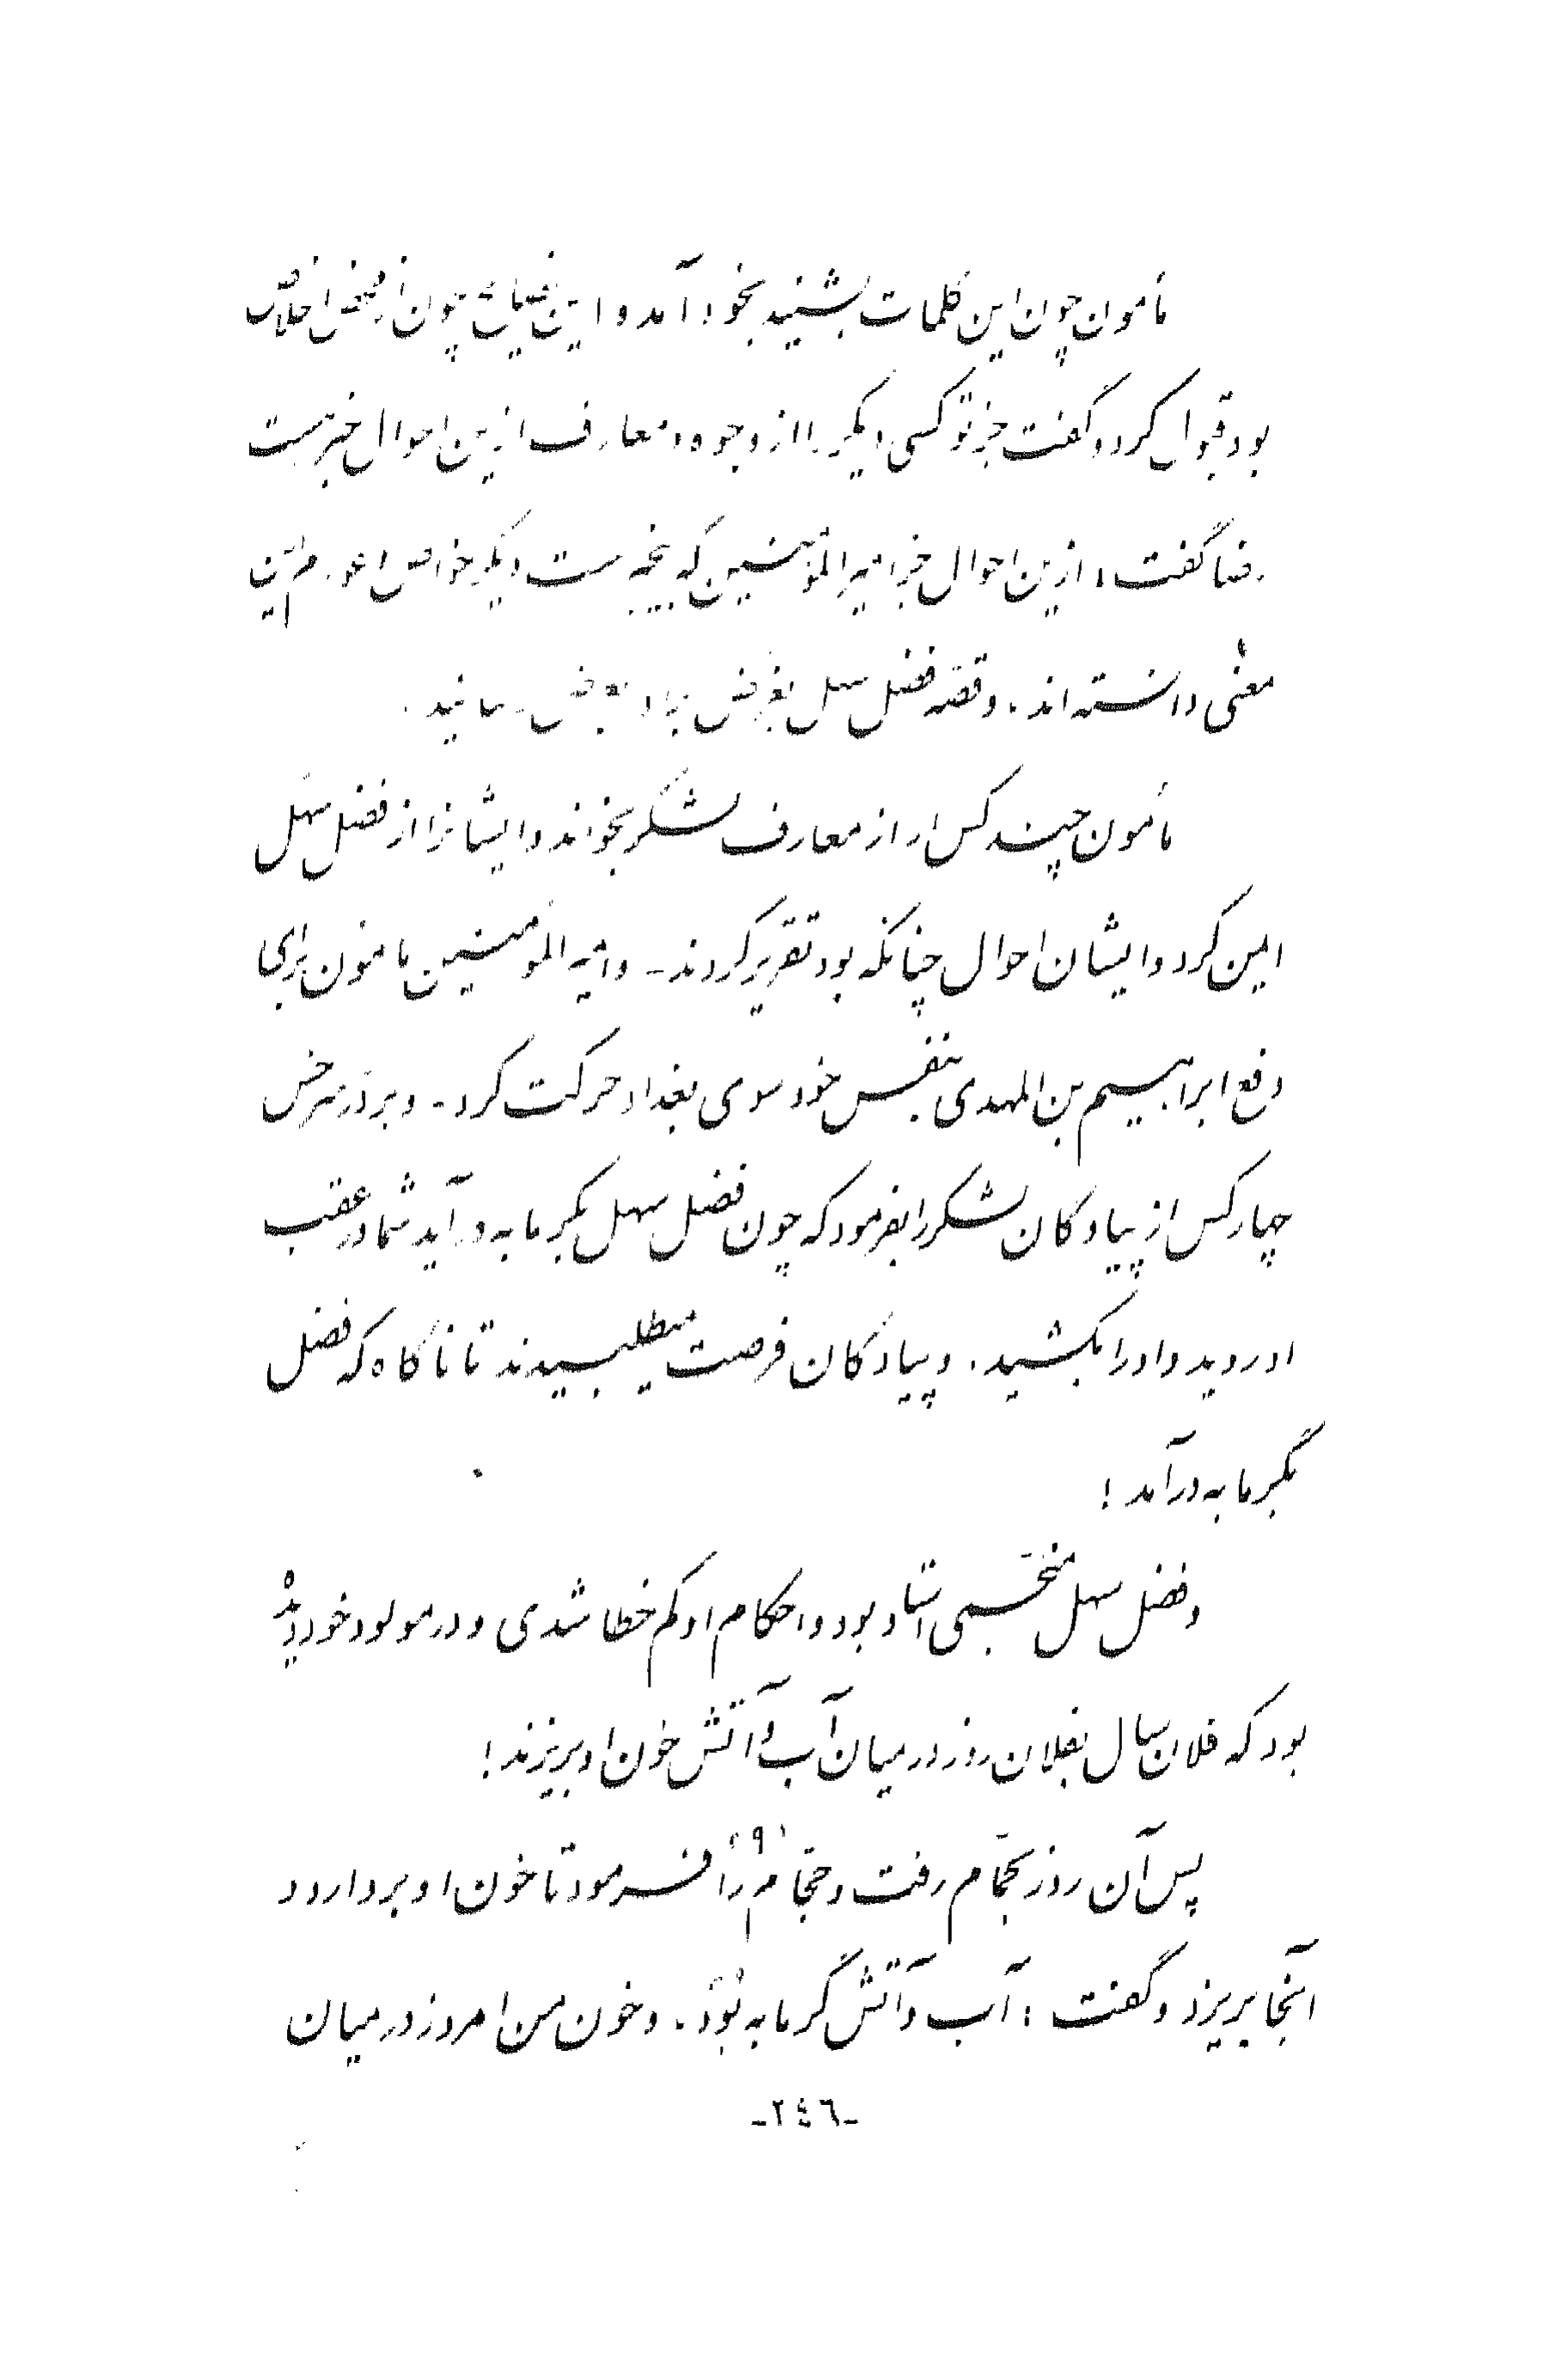 مأمون چون این کلمات بشنید بخود آمد و این نصایح چون از محض اخلاص
بود قبول کرد و گفت جز تو کسی دیگر را از وجوه و معارف ازین احوال خبر هست
رضا گفت: ازین احوال جز امیرالمؤمنین که بیخبرست دیگر خواص و عوام این
معنی دانسته‌اند. و قصه فضل سهل بغرض رسانید.
مأمون چند کس را از معارف لشگر بخواند و ایشانرا از فضل سهل
ایمن کرد و ایشان احوال چنانکه بود تقریر کردند - و امیرالمؤمنین مامون برای
دفع ابراهیم بن المهدی بنفس خود سوی بغداد حرکت کرد - و بر در سرخس
چهار کس از پیادگان لشکر را بفرمود که چون فضل سهل بگرمابه درآید شما در عقب
او روید و او را بکشید. و پیادگان فرصت میطلبیدند تا ناگاه که فضل
بگرمابه درآمد!
و فضل سهل منجمی استاد بود و احکام او کم خطا شدی و در مولود خود دیده
بود که فلان سال بفلان روز در میان آب و آتش خون او بریزند!
پس آن روز بحمام رفت و حجام را (۹) فرمود تا خون او بردارد و
آنجا بریزد و گفت: آب و آتش گرمابه بود. و خون من امروز در میان
-۲٤٦-